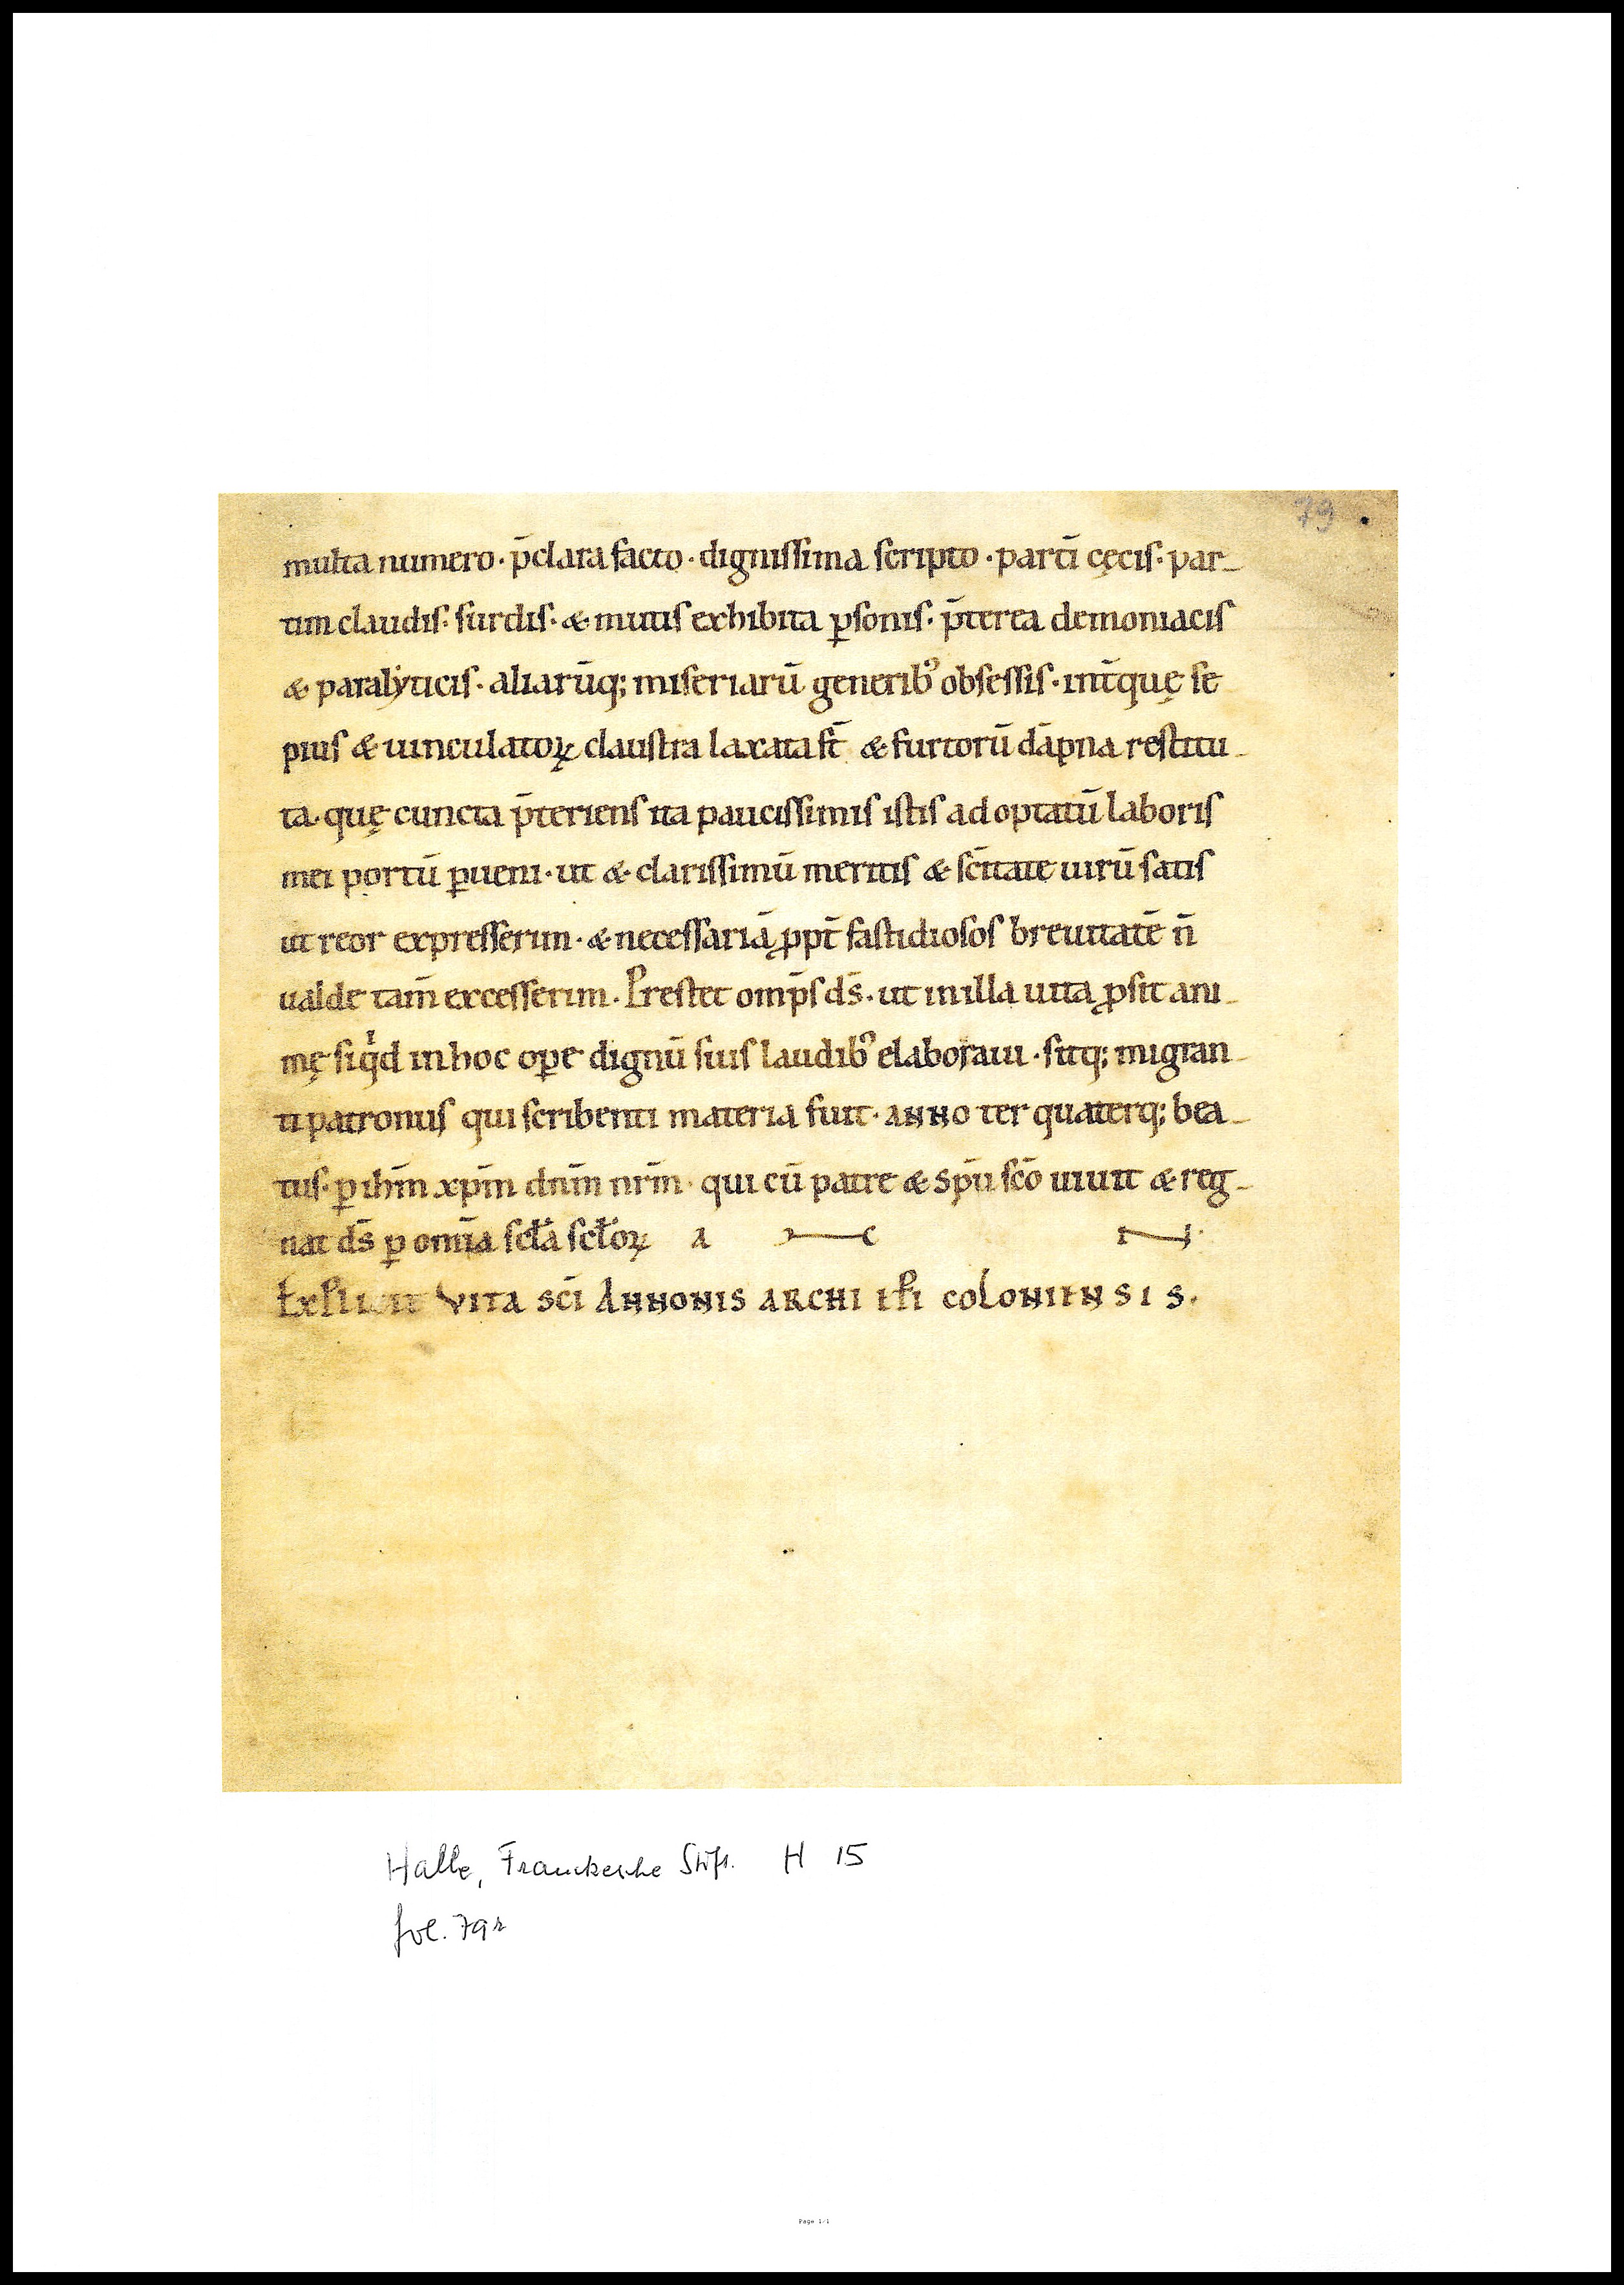 79
multa numero · p̄clara facto · dignissima scripto · partī cęcis · par-
tim claudis · surdis · & mutis exhibita ꝑsonis · p̄terea demoniacis
& paralẏticis · aliarūq; miseriarū generib᾽ obsessis · int̄quę se
pius & uinculatoꝝ claustra laxata st̄ & furtorū dāpna restitu-
ta · quę cuncta p̄teriens ita paucissimis istis ad optatū laboris
mei portū ꝑueni · ut & clarissimū meritis & sc̄itate uirū satis
ut reor expresserim · & necessariā ꝓpt̄ fastidiosos breuitatē n̄
ualde tam̄ excesserim. Prestet omp̄s ds̄ · ut in illa uita ꝓsit ani-
mę siqͥd in hoc oꝑe dignū suis laudib᾽ elaboraui · sitq; migran-
ti patronus qui scribenti materia fuit · ANNO ter quaterq; bea-
tus · ꝑ ihm̄ xpm̄ dnm̄ nrm̄ · qui cū patre & spū scō uiuit & reg-
nat ds̄ ꝑ omīa scła scłoꝝ A M E N.
EXPLICIT VITA SC̄I ANNONIS ARCHI EP̄I COLONIENSIS.
Halle, Franckesche Stift. H 15
fol. 79r
Page 1/1